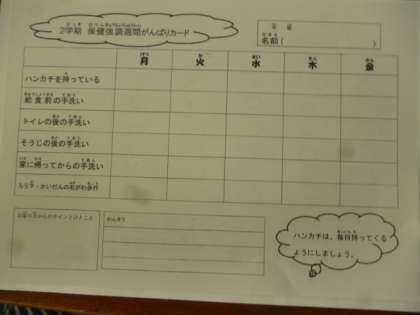 2学期 保健強調週間がんばりカード
年 組
名前( )
月 火 水 木 金
ハンカチを持っている
給食前の手洗い
トイレの後の手洗い
そうじの後の手洗い
家に帰ってからの手洗い
ろうか・かいだんの右がわ歩行
かんそう
ハンカチは、毎日持ってくる
ようにしましょう。